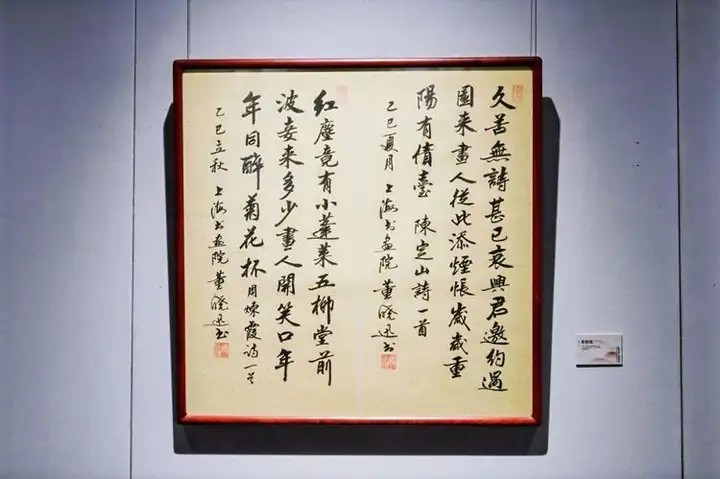 久苦無詩甚已衰興君邀約過
園来畫人從此添煙悵歲歲重
陽有債臺 陳定山詩一首
乙巳夏月 上海书画院 董曉迅书
紅塵竟有小蓬莱五柳堂前
波妾来多少畫人開笑口年
年同醉菊花杯 周煉霞诗一首
乙巳立秋 上海书画院 董曉迅书